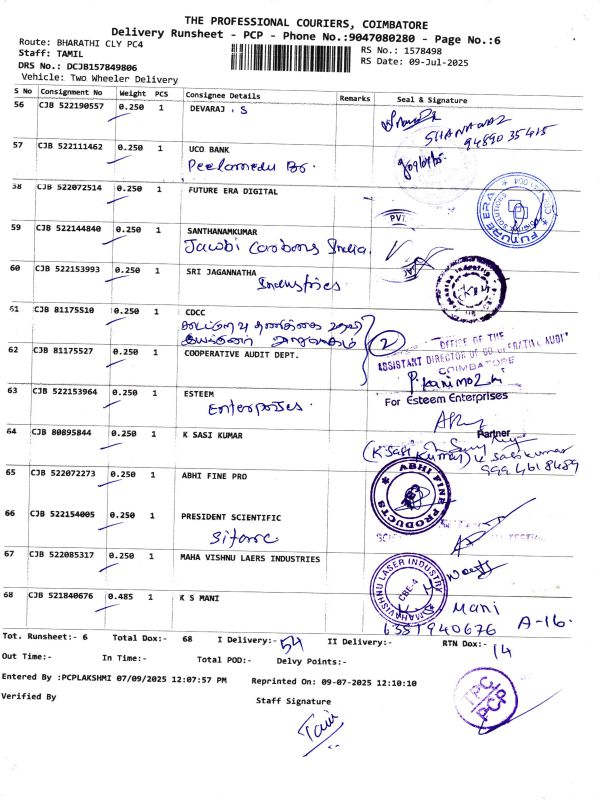 THE PROFESSIONAL COURIERS, COIMBATORE
Delivery Runsheet - PCP - Phone No.:9047080280 - Page No.:6
Route: BHARATHI CLY PC4
RS No.: 1578498
Staff: TAMIL
RS Date: 09-Jul-2025
DRS No.: DCJB157849806
Vehicle: Two Wheeler Delivery
S No Consignment No Weight PCS Consignee Details Remarks Seal & Signature
56 CJB 522190557 0.250 1 DEVARAJ . S
SHANAVAZ
94890 35415
57 CJB 522111462 0.250 1 UCO BANK
Peelamedu Br.
58 CJB 522072514 0.250 1 FUTURE ERA DIGITAL
PVT
FUTURE ERA
59 CJB 522144840 0.250 1 SANTHANAMKUMAR
Jacobi Carbons India.
60 CJB 522153993 0.250 1 SRI JAGANNATHA
Industries
61 CJB 81175510 0.250 1 CDCC
62 CJB 81175527 0.250 1 COOPERATIVE AUDIT DEPT.
2
OFFICE OF THE
ASSISTANT DIRECTOR OF CO-OPERATIVE AUDIT
COIMBATORE
63 CJB 522153964 0.250 1 ESTEEM
Enterprises.
For Esteem Enterprises
Partner
64 CJB 80895844 0.250 1 K SASI KUMAR
(K Sasi Kumar) K Sasikumar
999 4618489
65 CJB 522072273 0.250 1 ABHI FINE PRO
ABHI FINE PRODUCTS
66 CJB 522154005 0.250 1 PRESIDENT SCIENTIFIC
Sitarc
67 CJB 522085317 0.250 1 MAHA VISHNU LAERS INDUSTRIES
MAHAVISHNU LASER INDUSTRY
CBE-4
68 CJB 521840676 0.485 1 K S MANI
K.S Mani
6351940676
A-16.
Tot. Runsheet:- 6 Total Dox:- 68 I Delivery:- 54 II Delivery:- RTN Dox:- 14
Out Time:- In Time:- Total POD:- Delvy Points:-
Entered By :PCPLAKSHMI 07/09/2025 12:07:57 PM Reprinted On: 09-07-2025 12:10:10
Verified By Staff Signature
TPC/PCP
Tamil